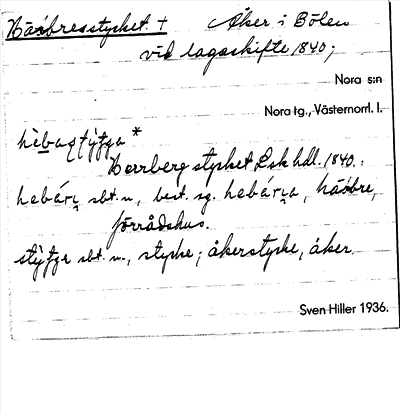 Häobresstycket + Åker i Bölen
vid lagaskifte 1840;
Nora s:n
Nora tg., Västernorrl. l.
*
Norrberg stycket Lsk hdl. 1840.:
sbt. n, best. sg. häobre,
förrådshus.
sbt. n., stycke; åkerstycke, åker.
Sven Hiller 1936.